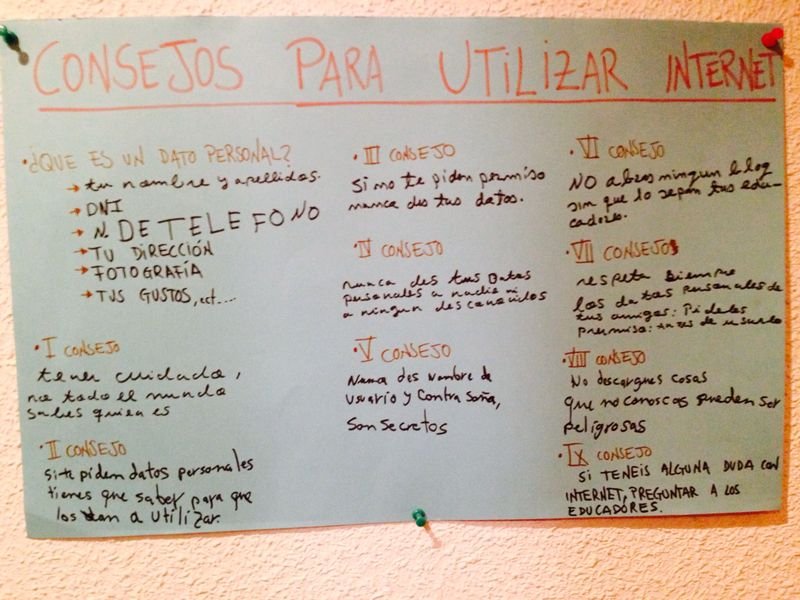 CONSEJOS PARA UTiLiZAR INTERNET
• ¿QUE ES UN DATO PERSONAL?
→ tu nombre y apellidos.
→ DNI
→ N. DE TELEFONO
→ TU DIRECCIÓN
→ FOTOGRAFÍA
→ TUS GUSTOS, ect....
• I CONSEJO
tener cuidado,
no todo el mundo
sabes quien es
• II CONSEJO
si te piden datos personales
tienes que saber para que
los van a utilizar.
• III CONSEJO
Si no te piden permiso
nunca des tus datos.
• IV CONSEJO
nunca des tus Datos
personales a nadie ni
a ningun desconocidos
• V CONSEJO
Nunca des nombre de
usuario y contraseña,
son secretos
• VI CONSEJO
NO abras ningun blog
sin que lo sepan tus edu-
cadores.
• VII CONSEJOS
respeta siempre
los datos personales de
tus amigos: Pideles
permiso: antes de usarlo
• VIII CONSEJO
No descargues cosas
que no conoscas pueden ser
peligrosas
• IX CONSEJO
SI TENEIS ALGUNA DUDA CON
INTERNET, PREGUNTAR A LOS
EDUCADORES.